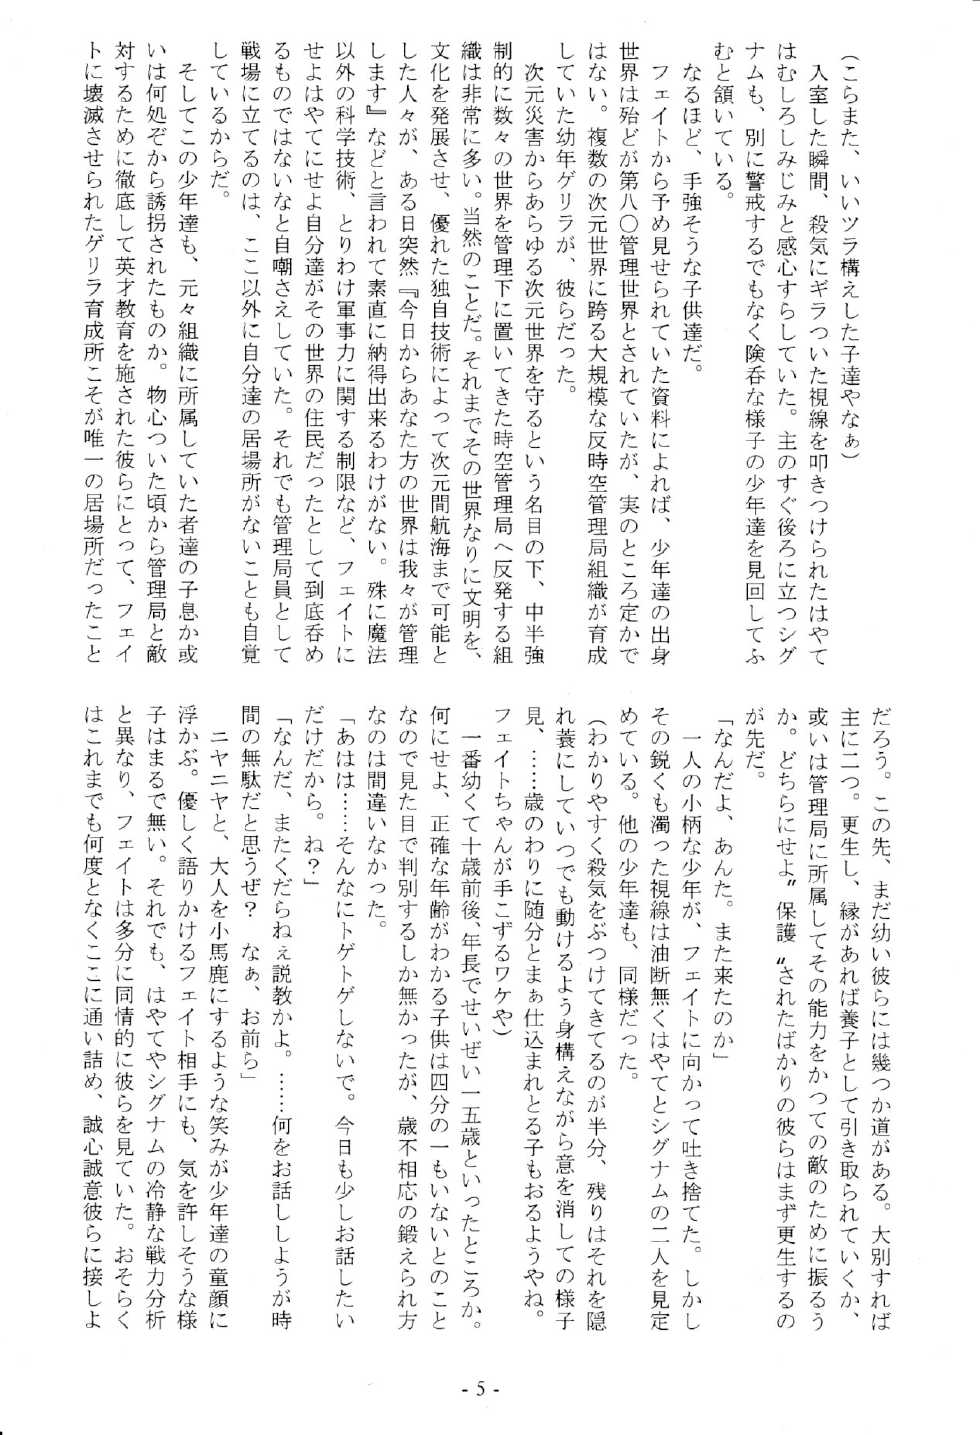 （こらまた、いいツラ構えした子達やなぁ）
　入室した瞬間、殺気にギラついた視線を叩きつけられたはやて
はむしろしみじみと感心すらしていた。主のすぐ後ろに立つシグ
ナムも、別に警戒するでもなく険呑な様子の少年達を見回してふ
むと頷いている。
　なるほど、手強そうな子供達だ。
　フェイトから予め見せられていた資料によれば、少年達の出身
世界は殆どが第八〇管理世界とされていたが、実のところ定かで
はない。複数の次元世界に跨る大規模な反時空管理局組織が育成
していた幼年ゲリラが、彼らだった。
　次元災害からあらゆる次元世界を守るという名目の下、中半強
制的に数々の世界を管理下に置いてきた時空管理局へ反発する組
織は非常に多い。当然のことだ。それまでその世界なりに文明を、
文化を発展させ、優れた独自技術によって次元間航海まで可能と
した人々が、ある日突然『今日からあなた方の世界は我々が管理
します』などと言われて素直に納得出来るわけがない。殊に魔法
以外の科学技術、とりわけ軍事力に関する制限など、フェイトに
せよはやてにせよ自分達がその世界の住民だったとして到底呑め
るものではないなと自嘲さえしていた。それでも管理局員として
戦場に立てるのは、ここ以外に自分達の居場所がないことも自覚
しているからだ。
　そしてこの少年達も、元々組織に所属していた者達の子息か或
いは何処ぞから誘拐されたものか。物心ついた頃から管理局と敵
対するために徹底して英才教育を施された彼らにとって、フェイ
トに壊滅させられたゲリラ育成所こそが唯一の居場所だったこと
だろう。この先、まだ幼い彼らには幾つか道がある。大別すれば
主に二つ。更生し、縁があれば養子として引き取られていくか、
或いは管理局に所属してその能力をかつての敵のために振るう
か。どちらにせよ〝保護〟されたばかりの彼らはまず更生するの
が先だ。
「なんだよ、あんた。また来たのか」
　一人の小柄な少年が、フェイトに向かって吐き捨てた。しかし
その鋭くも濁った視線は油断無くはやてとシグナムの二人を見定
めている。他の少年達も、同様だった。
（わかりやすく殺気をぶつけてきてるのが半分、残りはそれを隠
れ蓑にしていつでも動けるよう身構えながら意を消しての様子
見、……歳のわりに随分とまぁ仕込まれとる子もおるようやね。
フェイトちゃんが手こずるワケや）
　一番幼くて十歳前後、年長でせいぜい一五歳といったところか。
何にせよ、正確な年齢がわかる子供は四分の一もいないとのこと
なので見た目で判別するしか無かったが、歳不相応の鍛えられ方
なのは間違いなかった。
「あはは……そんなにトゲトゲしないで。今日も少しお話したい
だけだから。ね？」
「なんだ、またくだらねぇ説教かよ。……何をお話ししようが時
間の無駄だと思うぜ？　なぁ、お前ら」
　ニヤニヤと、大人を小馬鹿にするような笑みが少年達の童顔に
浮かぶ。優しく語りかけるフェイト相手にも、気を許しそうな様
子はまるで無い。それでも、はやてやシグナムの冷静な戦力分析
と異なり、フェイトは多分に同情的に彼らを見ていた。おそらく
はこれまでも何度となくここに通い詰め、誠心誠意彼らに接しよ
- 5 -